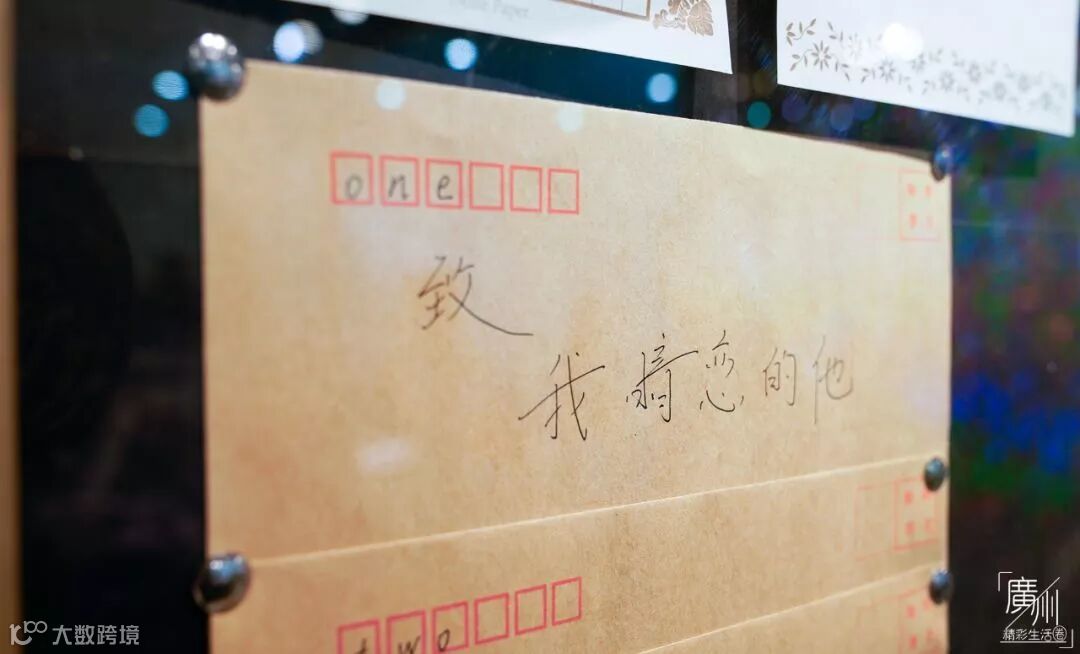 Paper
one
致
我暗恋的他
two
廣州
精彩生活圈
大数跨境